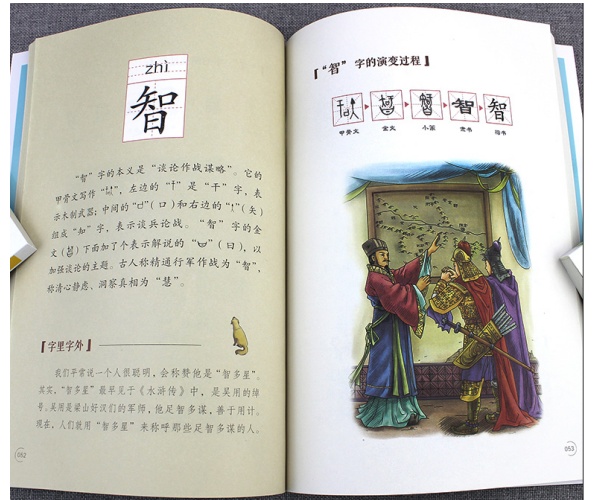 zhì
智
“智”字的本义是“谈论作战谋略”。它的
甲骨文写作“ ”,左边的“ ”是“干”字,表
示木制武器;中间的“ㅂ”(口)和右边的“ ”(矢)
组成“知”字,表示谈兵论战。“智”字的金
文( )下面加了个表示解说的“ ”(曰),以
加强谈论的主题。古人称精通行军作战为“智”,
称清心静虑、洞察真相为“慧”。
【字里字外】
我们平常说一个人很聪明,会称赞他是“智多星”。
其实,“智多星”最早见于《水浒传》中,是吴用的绰
号。吴用是梁山好汉们的军师,他足智多谋,善于用计。
现在,人们就用“智多星”来称呼那些足智多谋的人。
052
【“智”字的演变过程】
智 智
甲骨文 金文 小篆 隶书 楷书
053